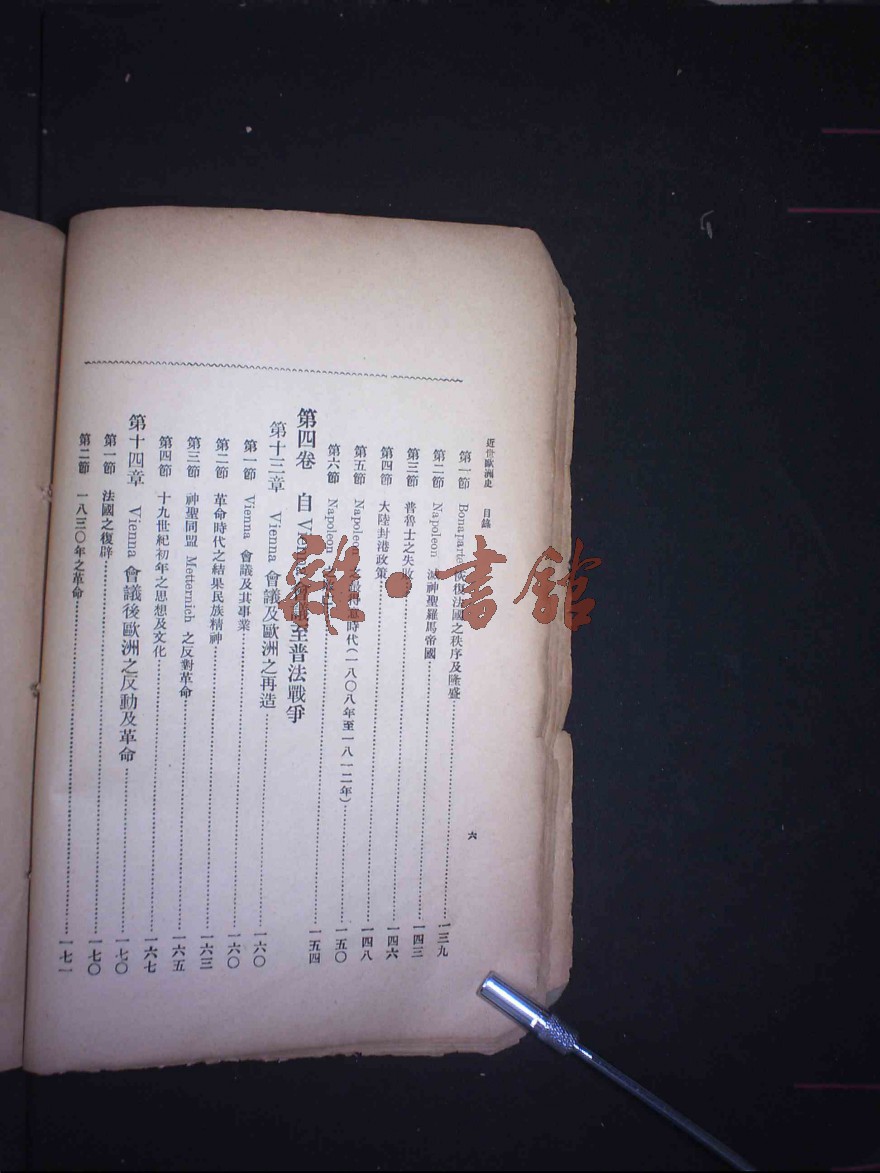 近世歐洲史 目錄
六
第一節 Bonaparte 恢復法國之秩序及隆盛 一三九
第二節 Napoleon 滅神聖羅馬帝國 一四三
第三節 普魯士之失敗 一四六
第四節 大陸封港政策 一四八
第五節 Napoleon 時代(一八〇八年至一八一二年) 一五〇
第六節 Napoleon 一五四
第四卷 自 Vienna 會議至普法戰爭
第十三章 Vienna 會議及歐洲之再造 一六〇
第一節 Vienna 會議及其事業 一六〇
第二節 革命時代之結果民族精神 一六三
第三節 神聖同盟 Metternich 之反對革命 一六五
第四節 十九世紀初年之思想及文化 一六七
第十四章 Vienna 會議後歐洲之反動及革命 一七〇
第一節 法國之復辟 一七〇
第二節 一八三〇年之革命 一七一
雜·書館